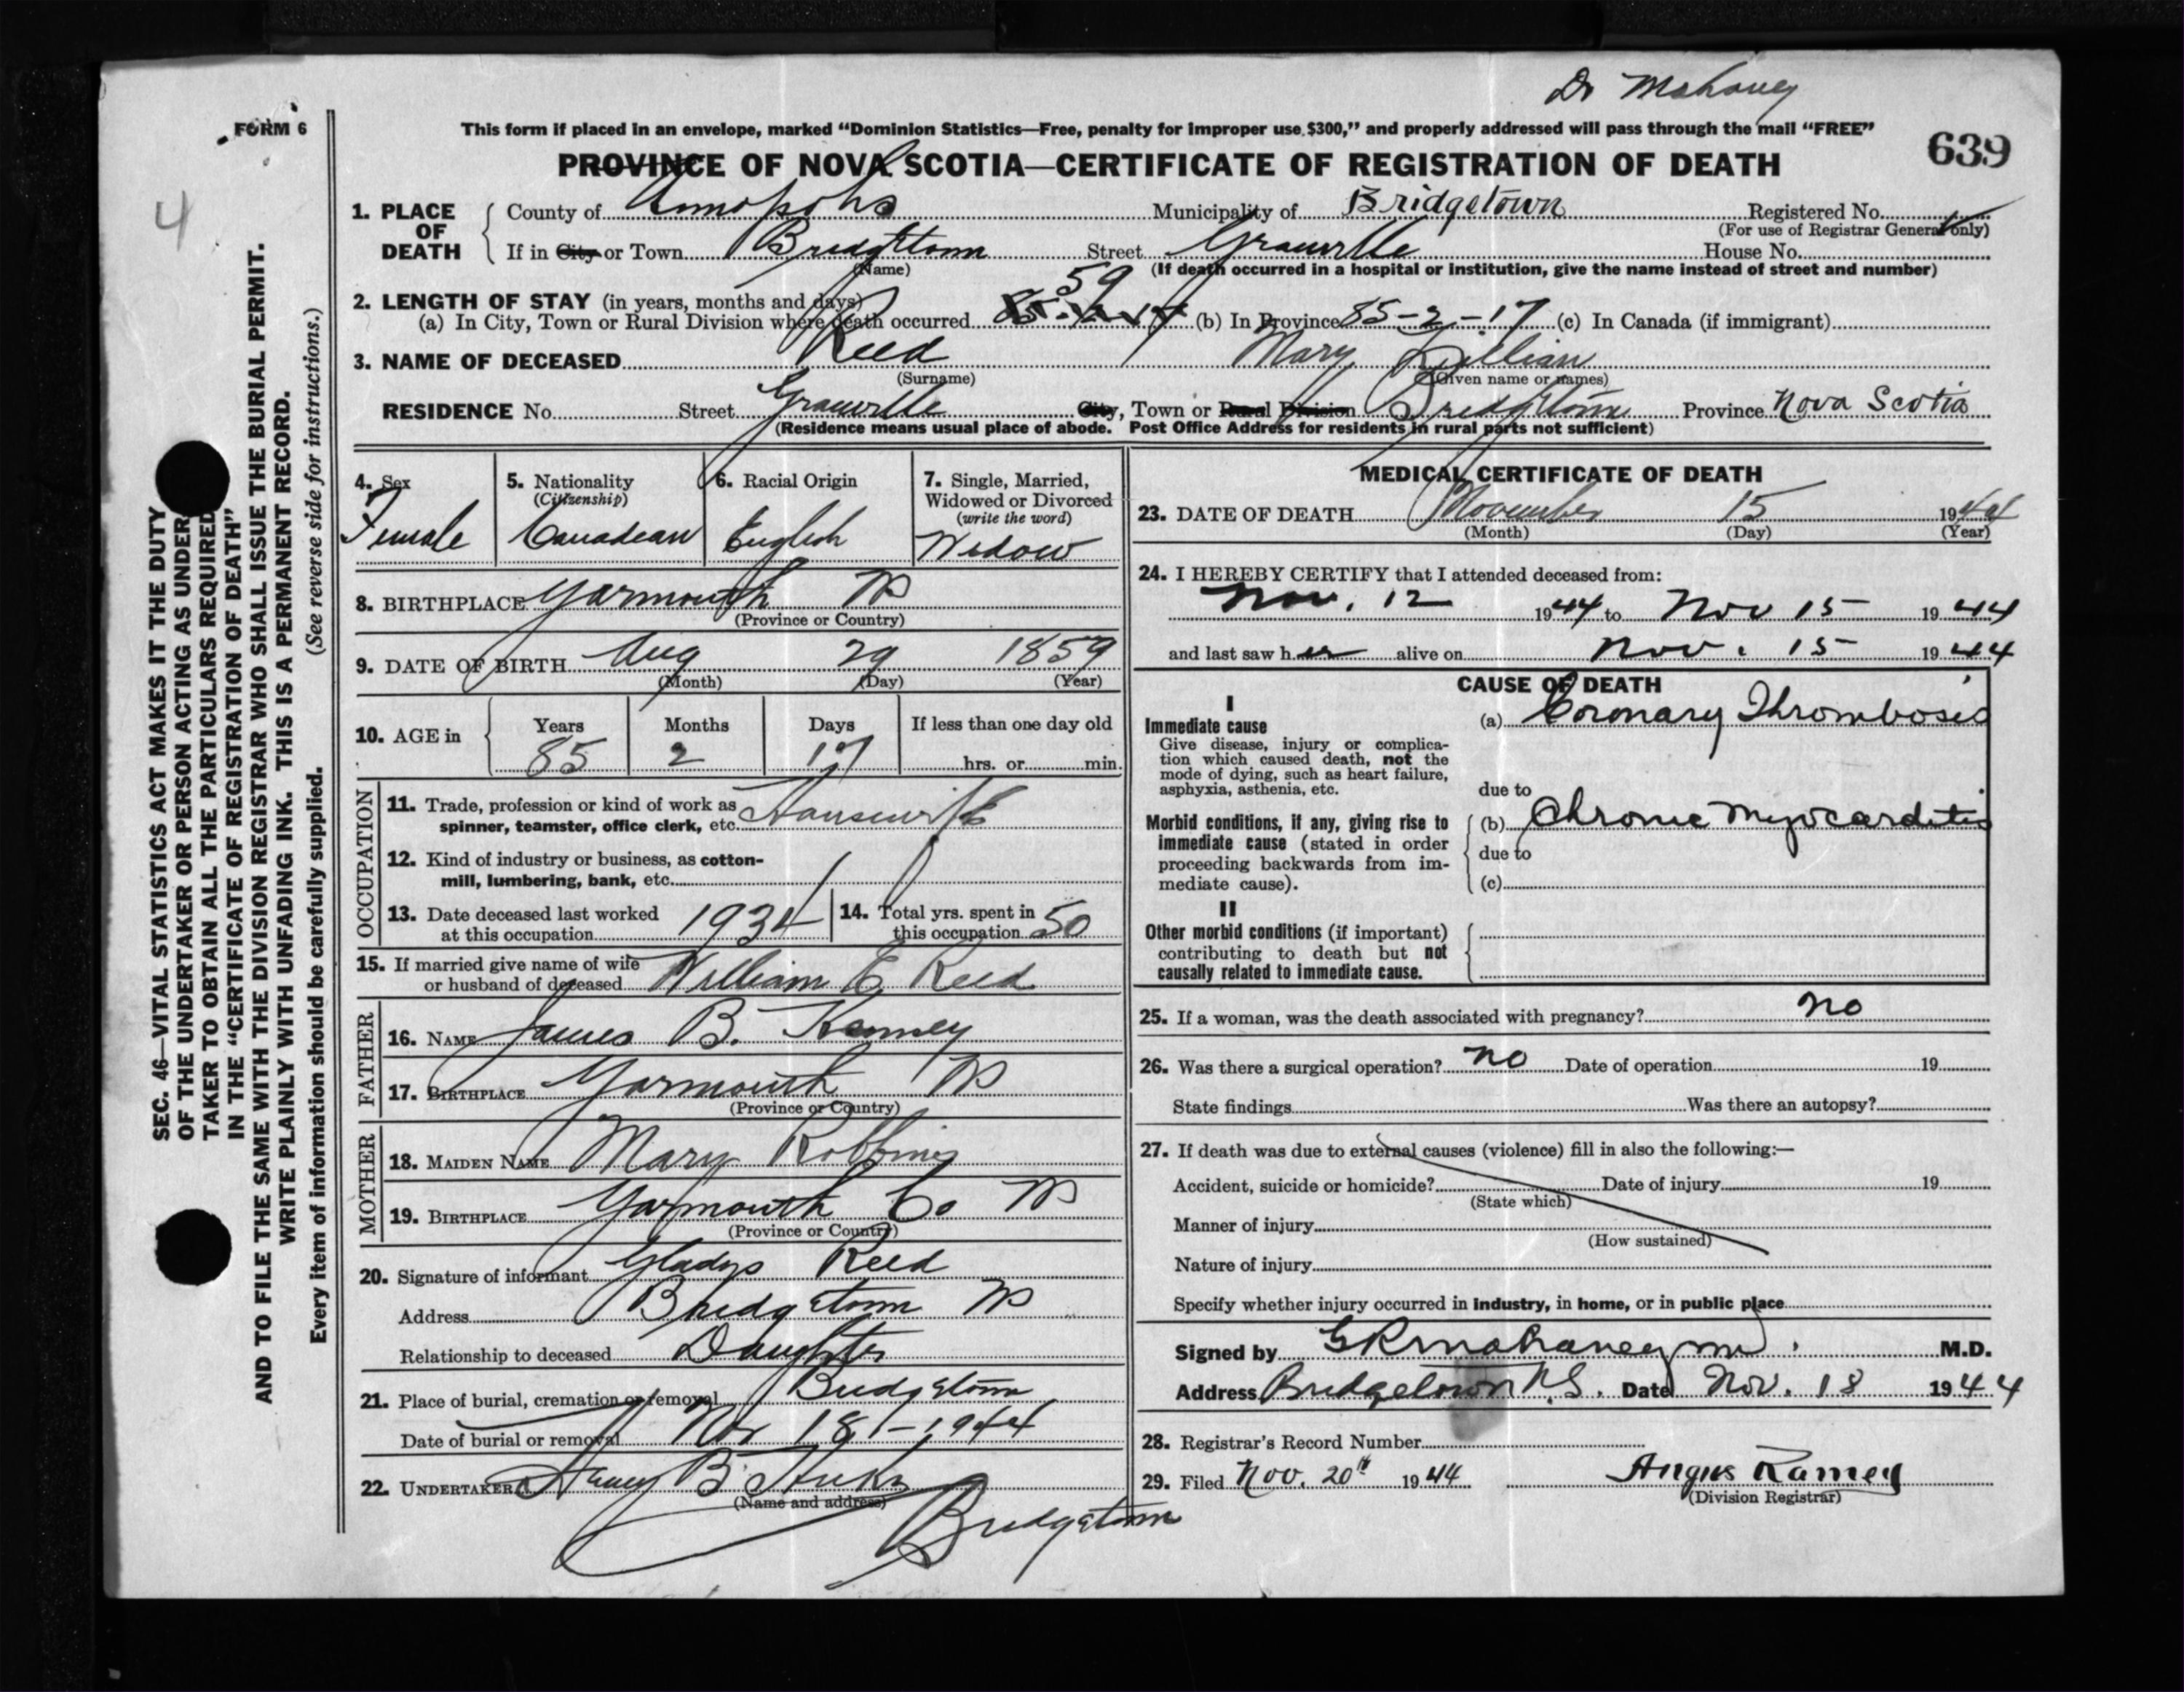 Dr Mahaney
FORM 6
This form if placed in an envelope, marked “Dominion Statistics—Free, penalty for improper use $300,” and properly addressed will pass through the mail “FREE”
639
PROVINCE OF NOVA SCOTIA—CERTIFICATE OF REGISTRATION OF DEATH
4
SEC. 46—VITAL STATISTICS ACT MAKES IT THE DUTY
OF THE UNDERTAKER OR PERSON ACTING AS UNDER
TAKER TO OBTAIN ALL THE PARTICULARS REQUIRED
IN THE “CERTIFICATE OF REGISTRATION OF DEATH”
AND TO FILE THE SAME WITH THE DIVISION REGISTRAR WHO SHALL ISSUE THE BURIAL PERMIT.
WRITE PLAINLY WITH UNFADING INK. THIS IS A PERMANENT RECORD.
Every item of information should be carefully supplied. (See reverse side for instructions.)
1. PLACE OF DEATH
County of Annapolis Municipality of Bridgetown Registered No.
(For use of Registrar General only)
If in City or Town Bridgetown Street Granville House No.
(Name) (If death occurred in a hospital or institution, give the name instead of street and number)
2. LENGTH OF STAY (in years, months and days) 59
(a) In City, Town or Rural Division where death occurred (b) In Province 85-2-17 (c) In Canada (if immigrant)
3. NAME OF DECEASED Reed Mary Lillian
(Surname) (Given name or names)
RESIDENCE No. Street Granville City, Town or Rural Division Bridgetown Province Nova Scotia
(Residence means usual place of abode. Post Office Address for residents in rural parts not sufficient)
4. Sex
Female
5. Nationality
(Citizenship)
Canadian
6. Racial Origin
English
7. Single, Married,
Widowed or Divorced
(write the word)
Widow
8. BIRTHPLACE Yarmouth NS
(Province or Country)
9. DATE OF BIRTH Aug 29 1859
(Month) (Day) (Year)
10. AGE in
Years Months Days If less than one day old
85 2 17 hrs. or min.
OCCUPATION
11. Trade, profession or kind of work as
spinner, teamster, office clerk, etc. Housewife
12. Kind of industry or business, as cotton-
mill, lumbering, bank, etc.
13. Date deceased last worked
at this occupation 1934
14. Total yrs. spent in
this occupation 50
15. If married give name of wife
or husband of deceased William E Reed
FATHER
16. NAME James B. Kenney
17. BIRTHPLACE Yarmouth NS
(Province or Country)
MOTHER
18. MAIDEN NAME Mary Robbins
19. BIRTHPLACE Yarmouth Co NS
(Province or Country)
20. Signature of informant Gladys Reed
Address Bridgetown NS
Relationship to deceased Daughter
21. Place of burial, cremation or removal Bridgetown
Date of burial or removal Nov 18 - 1944
22. UNDERTAKER B.
(Name and address)
Bridgetown
MEDICAL CERTIFICATE OF DEATH
23. DATE OF DEATH November 15 1944
(Month) (Day) (Year)
24. I HEREBY CERTIFY that I attended deceased from:
Nov. 12 1944 to Nov 15 1944
and last saw her alive on Nov. 15 1944
CAUSE OF DEATH
I
Immediate cause
Give disease, injury or complica-
tion which caused death, not the
mode of dying, such as heart failure,
asphyxia, asthenia, etc.
(a) Coronary Thrombosis
due to
Morbid conditions, if any, giving rise to
immediate cause (stated in order
proceeding backwards from im-
mediate cause).
(b) Chronic Myocarditis
due to
(c)
II
Other morbid conditions (if important)
contributing to death but not
causally related to immediate cause.
25. If a woman, was the death associated with pregnancy? no
26. Was there a surgical operation? no Date of operation 19
State findings Was there an autopsy?
27. If death was due to external causes (violence) fill in also the following:—
Accident, suicide or homicide? Date of injury 19
(State which)
Manner of injury
(How sustained)
Nature of injury
Specify whether injury occurred in industry, in home, or in public place
Signed by G R Mahaney MD. M.D.
Address Bridgetown N.S. Date Nov. 18 1944
28. Registrar’s Record Number
29. Filed Nov. 20th 1944 Angus Ramey
(Division Registrar)